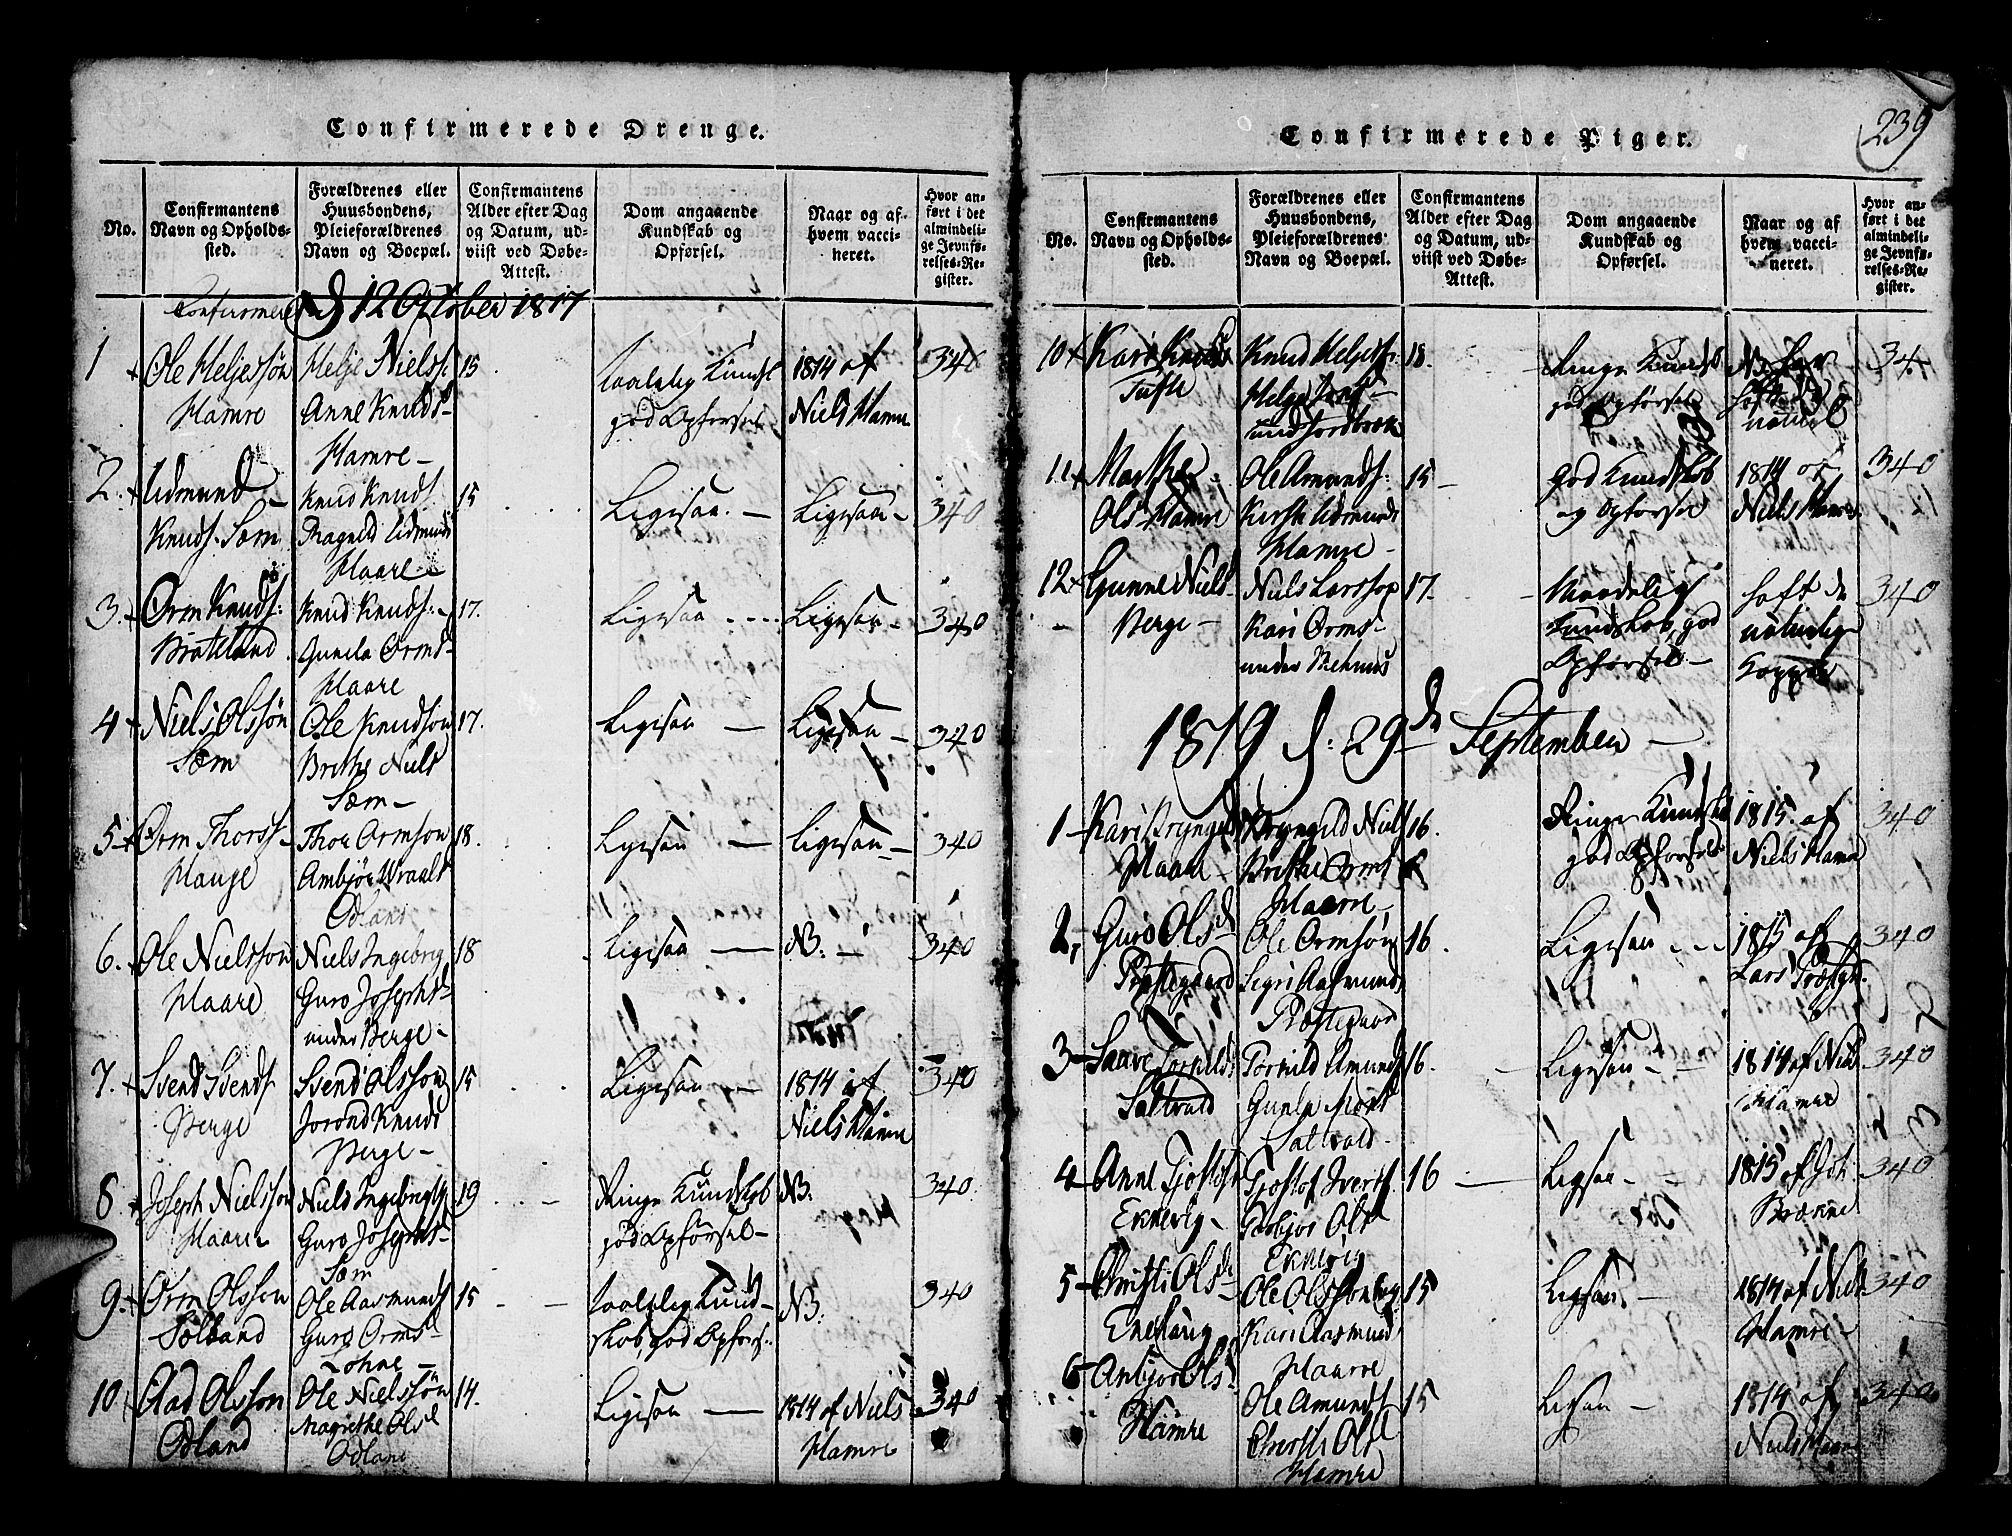 Confirmerede Drenge.
No.
Confirmantens Navn og Opholds-sted.
Forældrenes eller Huusbondens, Pleieforældrenes Navn og Boepæl.
Confirmantens Alder efter Dag og Datum, ud-viist ved Døbe-Attest.
Dom angaaende Kundskab og Opførsel.
Naar og af hvem vacci-neret.
Hvor an-ført i det almindeli-ge Jevnfø-relses-Re-gister.
d 12 October 1817
1
Ole Heljessøn
Hamre
Helje Nielss.
Anne Knuds-
Hamre-
15
taalelig Kundsk
god Opførsel
1814 af
Niels Hamre
340
2.
Udmund
Knuds. Sæm
Knud Knuds.
Ragnild Udmunds
Haare-
15
Ligesaa.-
Ligesaa-
340
3.
Orm Knuds:
Brateland
Knud Knuds:-
Gunela Orms-
Haare
17.
Ligesaa
Ligesaa-
340
4
Niels Olssøn
Sæm
Ole Knudson
Brithe Niels
Sæm-
17.
Ligesaa
Ligesaa-
340
5
Orm Thorss-
Hauge
Thor Ormson
Anbjør Wraals
Odland
18.
Ligesaa
Ligesaa-
340
6.
Ole Nielsson
Haare
Niels Ingebrig
Guro Josephs-
under Berge-
18
Ligesaa
NB:
340
7.
Svend Svends
Berge
Svend Olsson
Jorond Knuds
Berge-
15
Ligesaa
1814 af
Niels Hamre
340
8
Joseph Nielsson
Haare
Niels Ingebrigts
Guro Josephs-
Sæm
19
Ringe Kundskab
god Opførsel-
NB:
340
9.
Orm Olsson
Sælland
Ole Aasmunds
Guro Orms-
Lohne-
15
taalelig Kund-
skab, god Opførs..
NB:
340
10
Aad Olsson
Odland
Ole Nielssøn
Magrethe Ols
Odland
14.
Ligesaa
1814 af Niels
Hamre
340
239
Confirmerede Piger.
No.
Confirmantens Navn og Opholds-sted.
Forældrenes eller Huusbondens, Pleieforældrenes Navn og Boepæl.
Confirmantens Alder efter Dag og Datum, ud-viist ved Døbe-Attest.
Dom angaaende Kundskab og Opførsel.
Naar og af hvem vacci-neret.
Hvor an-ført i det almindeli-ge Jevnfø-relses-Re-gister.
10
Kari Knuds
Tufte
Knud Heljess.
18.
Ringe Kundsk
god Opførsel
34
11
Marthe
Ols- Hamre
Ole Amunds:
Kirsti Udmunds
Hamre-
15
God Kundskab
og Opførsel
1814 af
Niels Hamre
340
12
Gunne Niels
Berge-
Niels Larsson
Kari Orms-
under
17.
Maadelig
Kundskab, god
Opførsel-
haft de
naturlige
Kopper
340
1819 d: 29de September-
1
Kari Bryngels
Haare
Bryngeld Niels
Brithe Orms
Haarre-
16.
Ringe Kundsk
god Opførsel
1815 af
Niels Hamre
340
2,
Guro Olsd
Præstegaard
Ole Ormsøn
Segri Aasmunds
Præstegaard
16.
Ligesaa
1815 af
Lars
340
3
Saave Torkilds
Saltvold
Torkild Amunds
Gunla
Saltvold-
16.
Ligesaa-
1814 af Niels
Hamre
340
4
Anne Tjøstofs
Eknevig-
Tjostof Iverts.
Torbjor Ols
Eknevig
16
Ligesaa
1815 af Joh.
Brække
340
5
Christi: Olsd
Enehaug
Ole Olsson
Kari Aasmunds
Haarre
15
Ligesaa
1814 af Niels
Hamre-
340
6
Anbjor Olsd
Hamre
Ole Amunds
Ols
Hamre
15
Ligesaa
1814 af
Niels Hamre
340